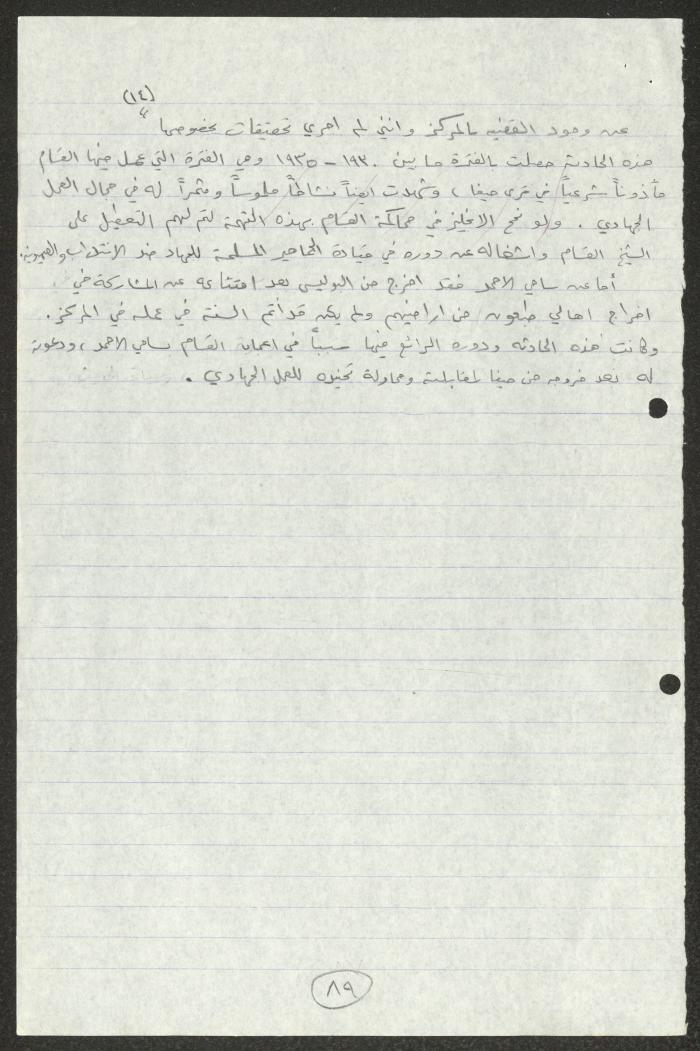 (١٤)
عن وجود القضيه بالمركز وانني لم اجري تحقيقات بخصوصها"
هذه الحادثة حصلت بالفترة ما بين ١٩٣٠ - ١٩٣٥ وهي الفترة التي عمل فيها القسام
مأذوناً شرعياً في قرى حيفا، وشهدت ايضاً نشاطاً ملموساً ومثمراً له في مجال العمل
الجهادي. ولو نجح الانجليز في محاكمة القسام بهذه التهمة لتم لهم التعطيل على
الشيخ القسام واشغاله عن دوره في قيادة الجماهير المسلمة للجهاد ضد الانتداب والصهيونية.
أما عن سامي الاحمد فقد اخرج من البوليس بعد امتناعه عن المشاركة في
اخراج اهالي طبعون من اراضيهم ولم يكن قد أتم السنة في عمله في المركز.
وكانت هذه الحادثه ودوره الرائع فيها سبباً في اعجاب القسام بسامي الاحمد، ودعوته
له بعد خروجه من حيفا لمقابلته ومحاولة تجنيده للعمل الجهادي.
٨٩